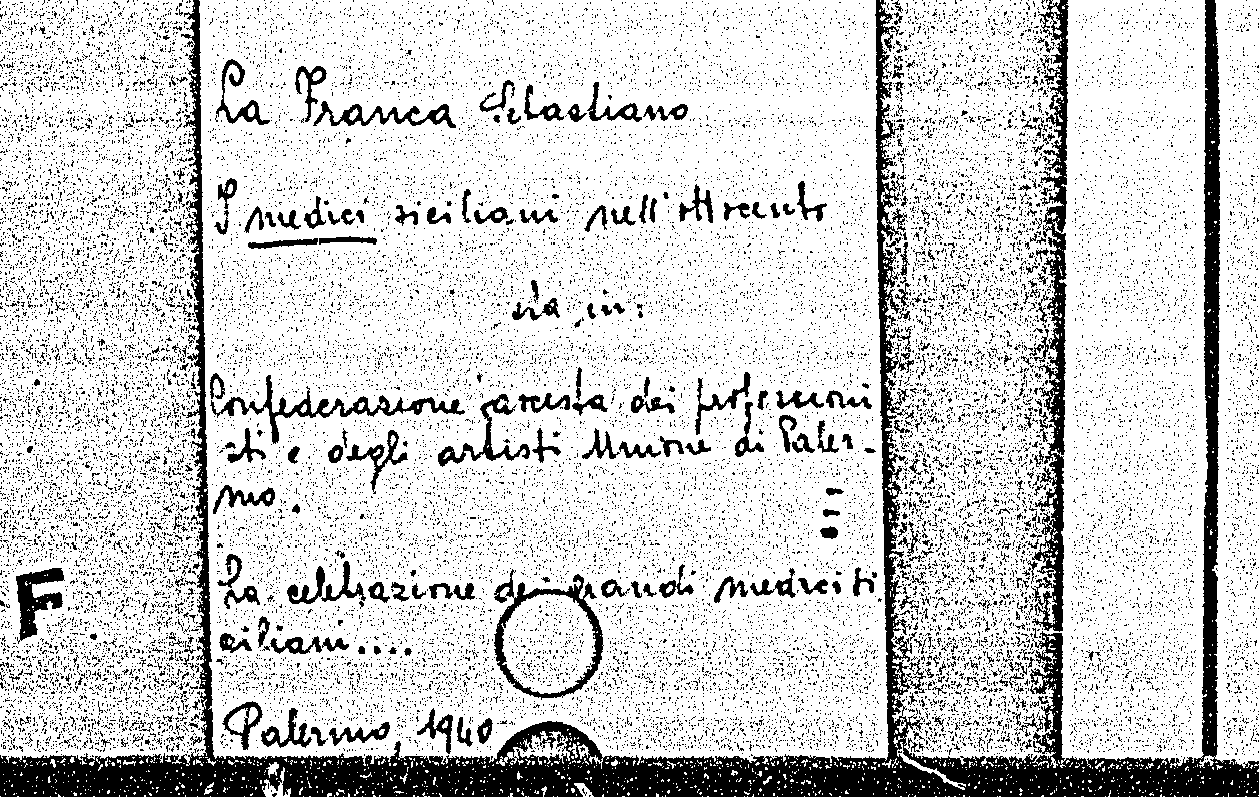 La Franca Sebastiano
I medici siciliani nell'ottocento
sta in:
Confederazione fascista dei professioni
sti e degli artisti Unione di Paler-
mo.
La celebrazione dei grandi medici si
ciliani....
F
Palermo, 1940